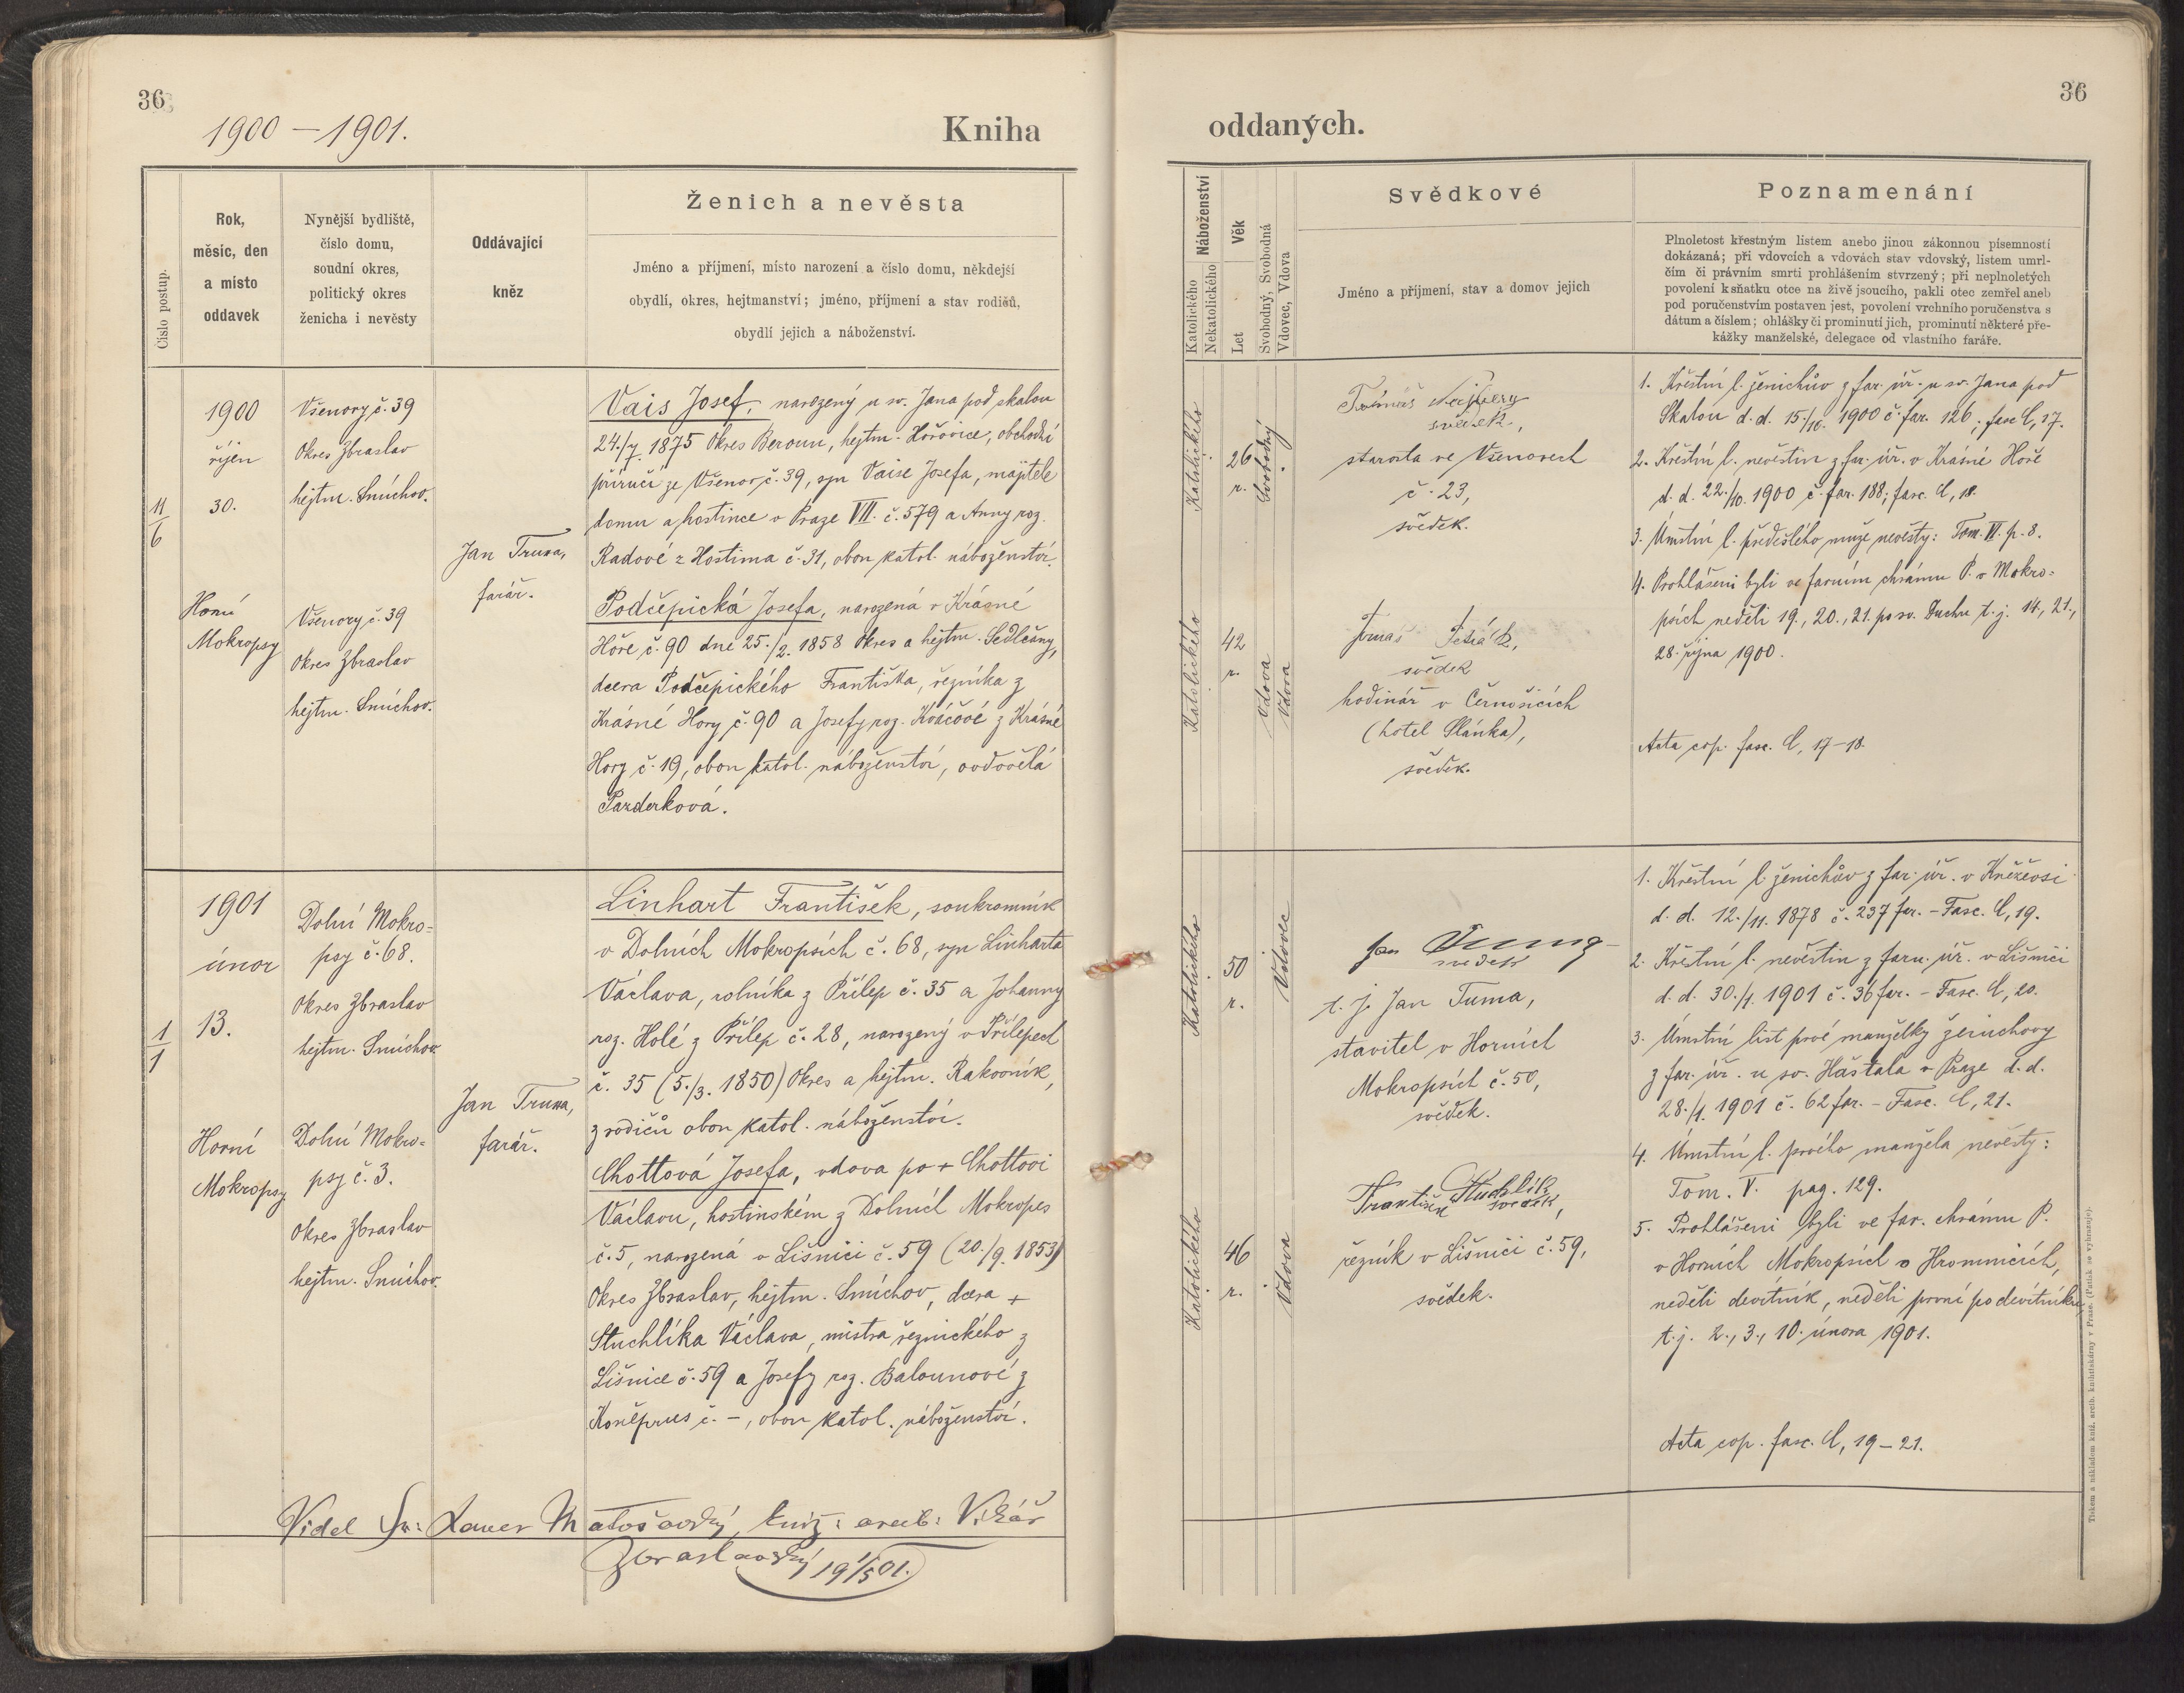 36
1900 – 1901.
Kniha
Číslo postup.
Rok,
měsíc, den
a místo
oddavek
Nynější bydliště,
číslo domu,
soudní okres,
politický okres
ženicha i nevěsty
Oddávající
kněz
Ženich a nevěsta
Jméno a příjmení, místo narození a číslo domu, někdejší
obydlí, okres, hejtmanství; jméno, příjmení a stav rodičů,
obydlí jejich a náboženství.
11
6
1900
říjen
30.
Horní
Mokropsy
Všenory č. 39
Okres Zbraslav
hejtm. Smíchov.
Všenory č. 39
Okres Zbraslav
hejtm. Smíchov.
Jan Truxa,
farář.
Vais Josef, narozený u sv. Jana pod skalou
24./7. 1875 Okres Beroun, hejtm. Hořovice, obchodní
příručí ze Všenor č. 39, syn Vaise Josefa, majitele
domu a hostince v Praze VII. č. 579 a Anny roz.
Radové z Hostima č. 31, obou katol. náboženství.
Podčepická Josefa, narozená v Krásné
Hoře č. 90 dne 25./2. 1858 Okres a hejtm. Sedlčany,
dcera Podčepického Františka, řezníka z
Krásné Hory č. 90 a Josefy roz. Kváčové z Krásné
Hory č. 19, obou katol. náboženství, ovdovělá
Parderková.
1
1
1901
únor
13.
Horní
Mokropsy
Dolní Mokro-
psy č. 68.
Okres Zbraslav
hejtm. Smíchov.
Dolní Mokro-
psy č. 3.
Okres Zbraslav
hejtm. Smíchov.
Jan Truxa,
farář.
Linhart František, soukromník
v Dolních Mokropsích č. 68, syn Linharta
Václava, rolníka z Přílep č. 35 a Johanny
roz. Holé z Přílep č. 28, narozený v Přílepech
č. 35 (5./3. 1850) Okres a hejtm. Rakovník,
z rodičů obou katol. náboženství.
Chottová Josefa, vdova po + Chottovi
Václavu, hostinském z Dolních Mokropes
č. 5, narozená v Líšnici č. 59 (20./9. 1853)
Okres Zbraslav, hejtm. Smíchov, dcera +
Stuchlíka Václava, mistra řeznického z
Líšnice č. 59 a Josefy roz. Balounové z
Koněprus č. –, obou katol. náboženství.
Viděl Fr: Xaver Matošovský, kníž: arcib: Vikář
Zbraslavský 19/5 01.
36
oddaných.
Náboženství
Katolického
Nekatolického
Věk
Let
Svobodný, Svobodná
Vdovec, Vdova
Svědkové
Jméno a příjmení, stav a domov jejich
Poznamenání
Plnoletost křestným listem anebo jinou zákonnou písemností
dokázaná; při vdovcích a vdovách stav vdovský, listem umrl-
čím či právním smrti prohlášením stvrzený; při neplnoletých
povolení k sňatku otce na živě jsoucího, pakli otec zemřel aneb
pod poručenstvím postaven jest, povolení vrchního poručenstva s
dátum a číslem; ohlášky či prominutí jich, prominutí některé pře-
kážky manželské, delegace od vlastního faráře.
Katolického
26
r.
Svobodný
svědek,
starosta ve Všenorech
č. 23,
svědek.
Katolického
42
r.
Vdova
Vdova
svědek
hodinář v Černošicích
(hotel Slánka),
svědek.
1. Křestní l. ženichův z far. úř. u sv. Jana pod
Skalou d. d. 15./10. 1900 č. far. 126; fasc. C, 17.
2. Křestní l. nevěstin z far. úř. v Krásné Hoře
d. d. 22./10. 1900 č. far. 188; fasc. C, 18.
3. Úmrtní l. předešlého muže nevěsty: Tom. VI. p. 8.
4. Prohlášeni byli ve farním chrámu P. v Mokro-
psích neděli 19., 20., 21. po sv. Duchu t. j. 14., 21.,
28. října 1900.
Acta cop. fasc. C, 17–18.
Katolického
50
r.
Vdovec
Jan Tuma
svědek
t. j. Jan Tuma,
stavitel v Horních
Mokropsích č. 50,
svědek.
Katolického
46
r.
Vdova
František Stuchlík
svědek,
řezník v Líšnici č. 59,
svědek.
1. Křestní l. ženichův z far. úř. v Kněževsi
d. d. 12./11. 1878 č. 237 far. – Fasc. C, 19.
2. Křestní l. nevěstin z farn. úř. v Líšnici
d. d. 30./1. 1901 č. 36 far. – Fasc. C, 20.
3. Úmrtní list prvé manželky ženichovy
z far. úř. u sv. Haštala v Praze d. d.
28./1. 1901 č. 62 far. – Fasc. C, 21.
4. Úmrtní l. prvého manžela nevěsty:
Tom. V. pag. 129.
5. Prohlášeni byli ve far. chrámu P.
v Horních Mokropsích o Hromnicích,
neděli devítník, neděli první po devítníku,
t. j. 2., 3., 10. února 1901.
Acta cop. fasc. C, 19–21.
Tiskem a nákladem kníž. arcib. knihtiskárny v Praze. (Patisk se vyhrazuje).